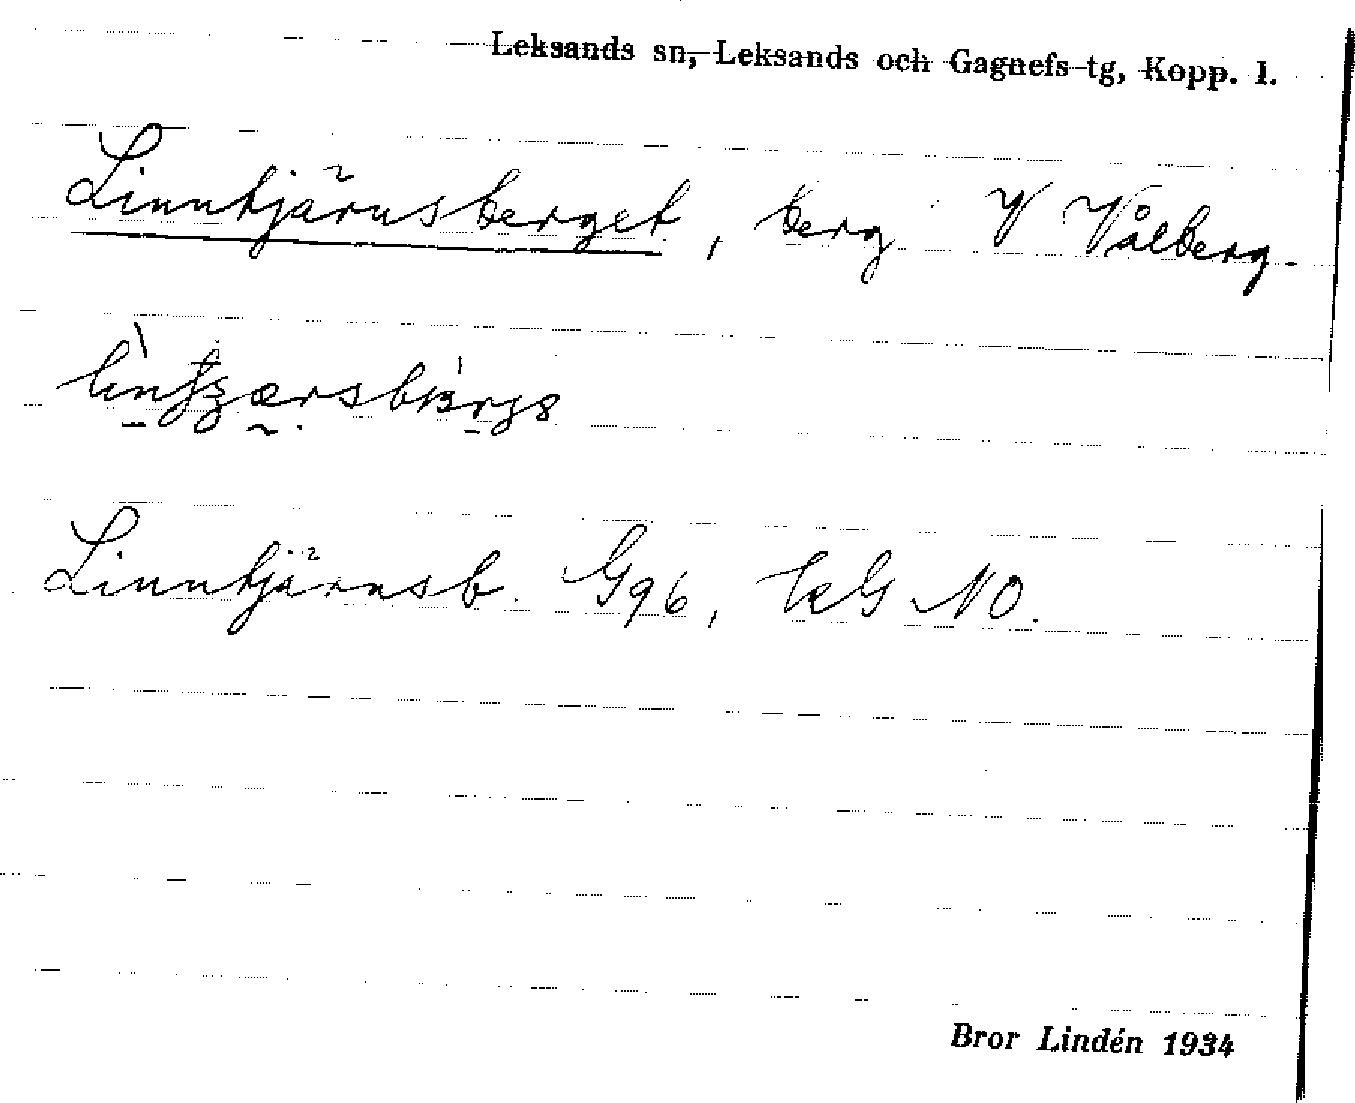 Leksands sn, Leksands och Gagnefs tg, Kopp. l.
Linntjärnsberget, berg V Vålberg.
Linntjärnsb. G96, NO.
Bror Lindén 1934